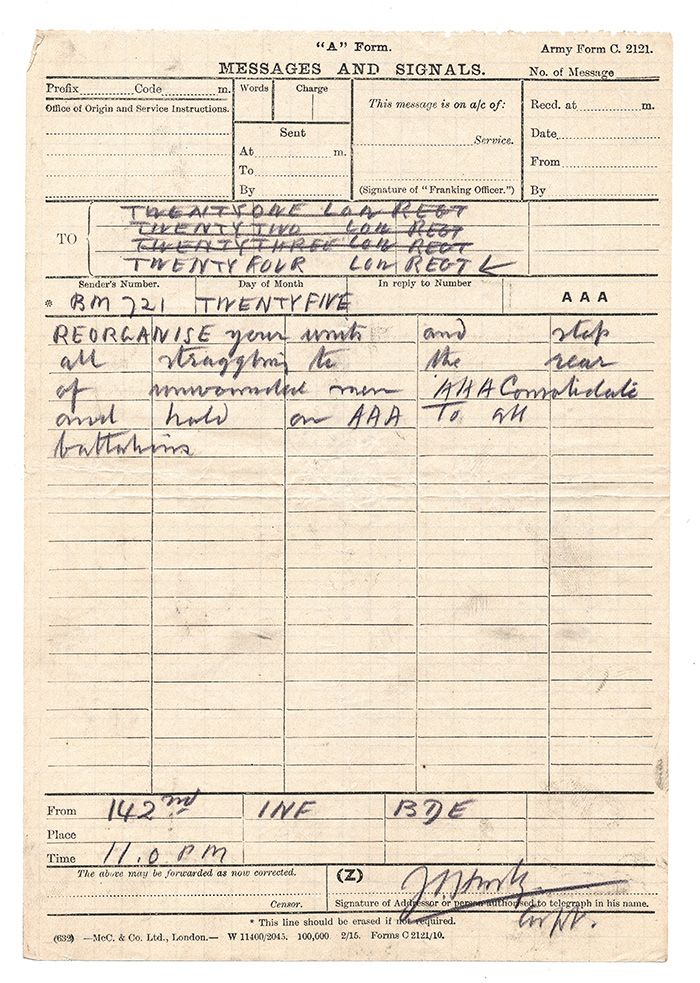 "A" Form.
Army Form C. 2121.
MESSAGES AND SIGNALS.
No. of Message
Prefix Code m.
Office of Origin and Service Instructions.
Words Charge
Sent
At m.
To
By
This message is on a/c of:
Service.
(Signature of "Franking Officer.")
Recd. at m.
Date
From
By
TO
TWENTYONE LON REGT
TWENTY TWO LON REGT
TWENTYTHREE LON REGT
TWENTYFOUR LON REGT
Sender's Number. Day of Month In reply to Number
* BM 721 TWENTYFIVE AAA
REORGANISE your units and stop
all straggling to the rear
of unwounded men AAA Consolidate
and hold on AAA To all
battalions
From 142nd INF BDE
Place
Time 11.0 PM
The above may be forwarded as now corrected. (Z)
Censor. Signature of Addressor or person authorised to telegraph in his name.
* This line should be erased if not required.
(632) —McC. & Co. Ltd., London.— W 11400/2045. 100,000 2/15. Forms C 2121/10.